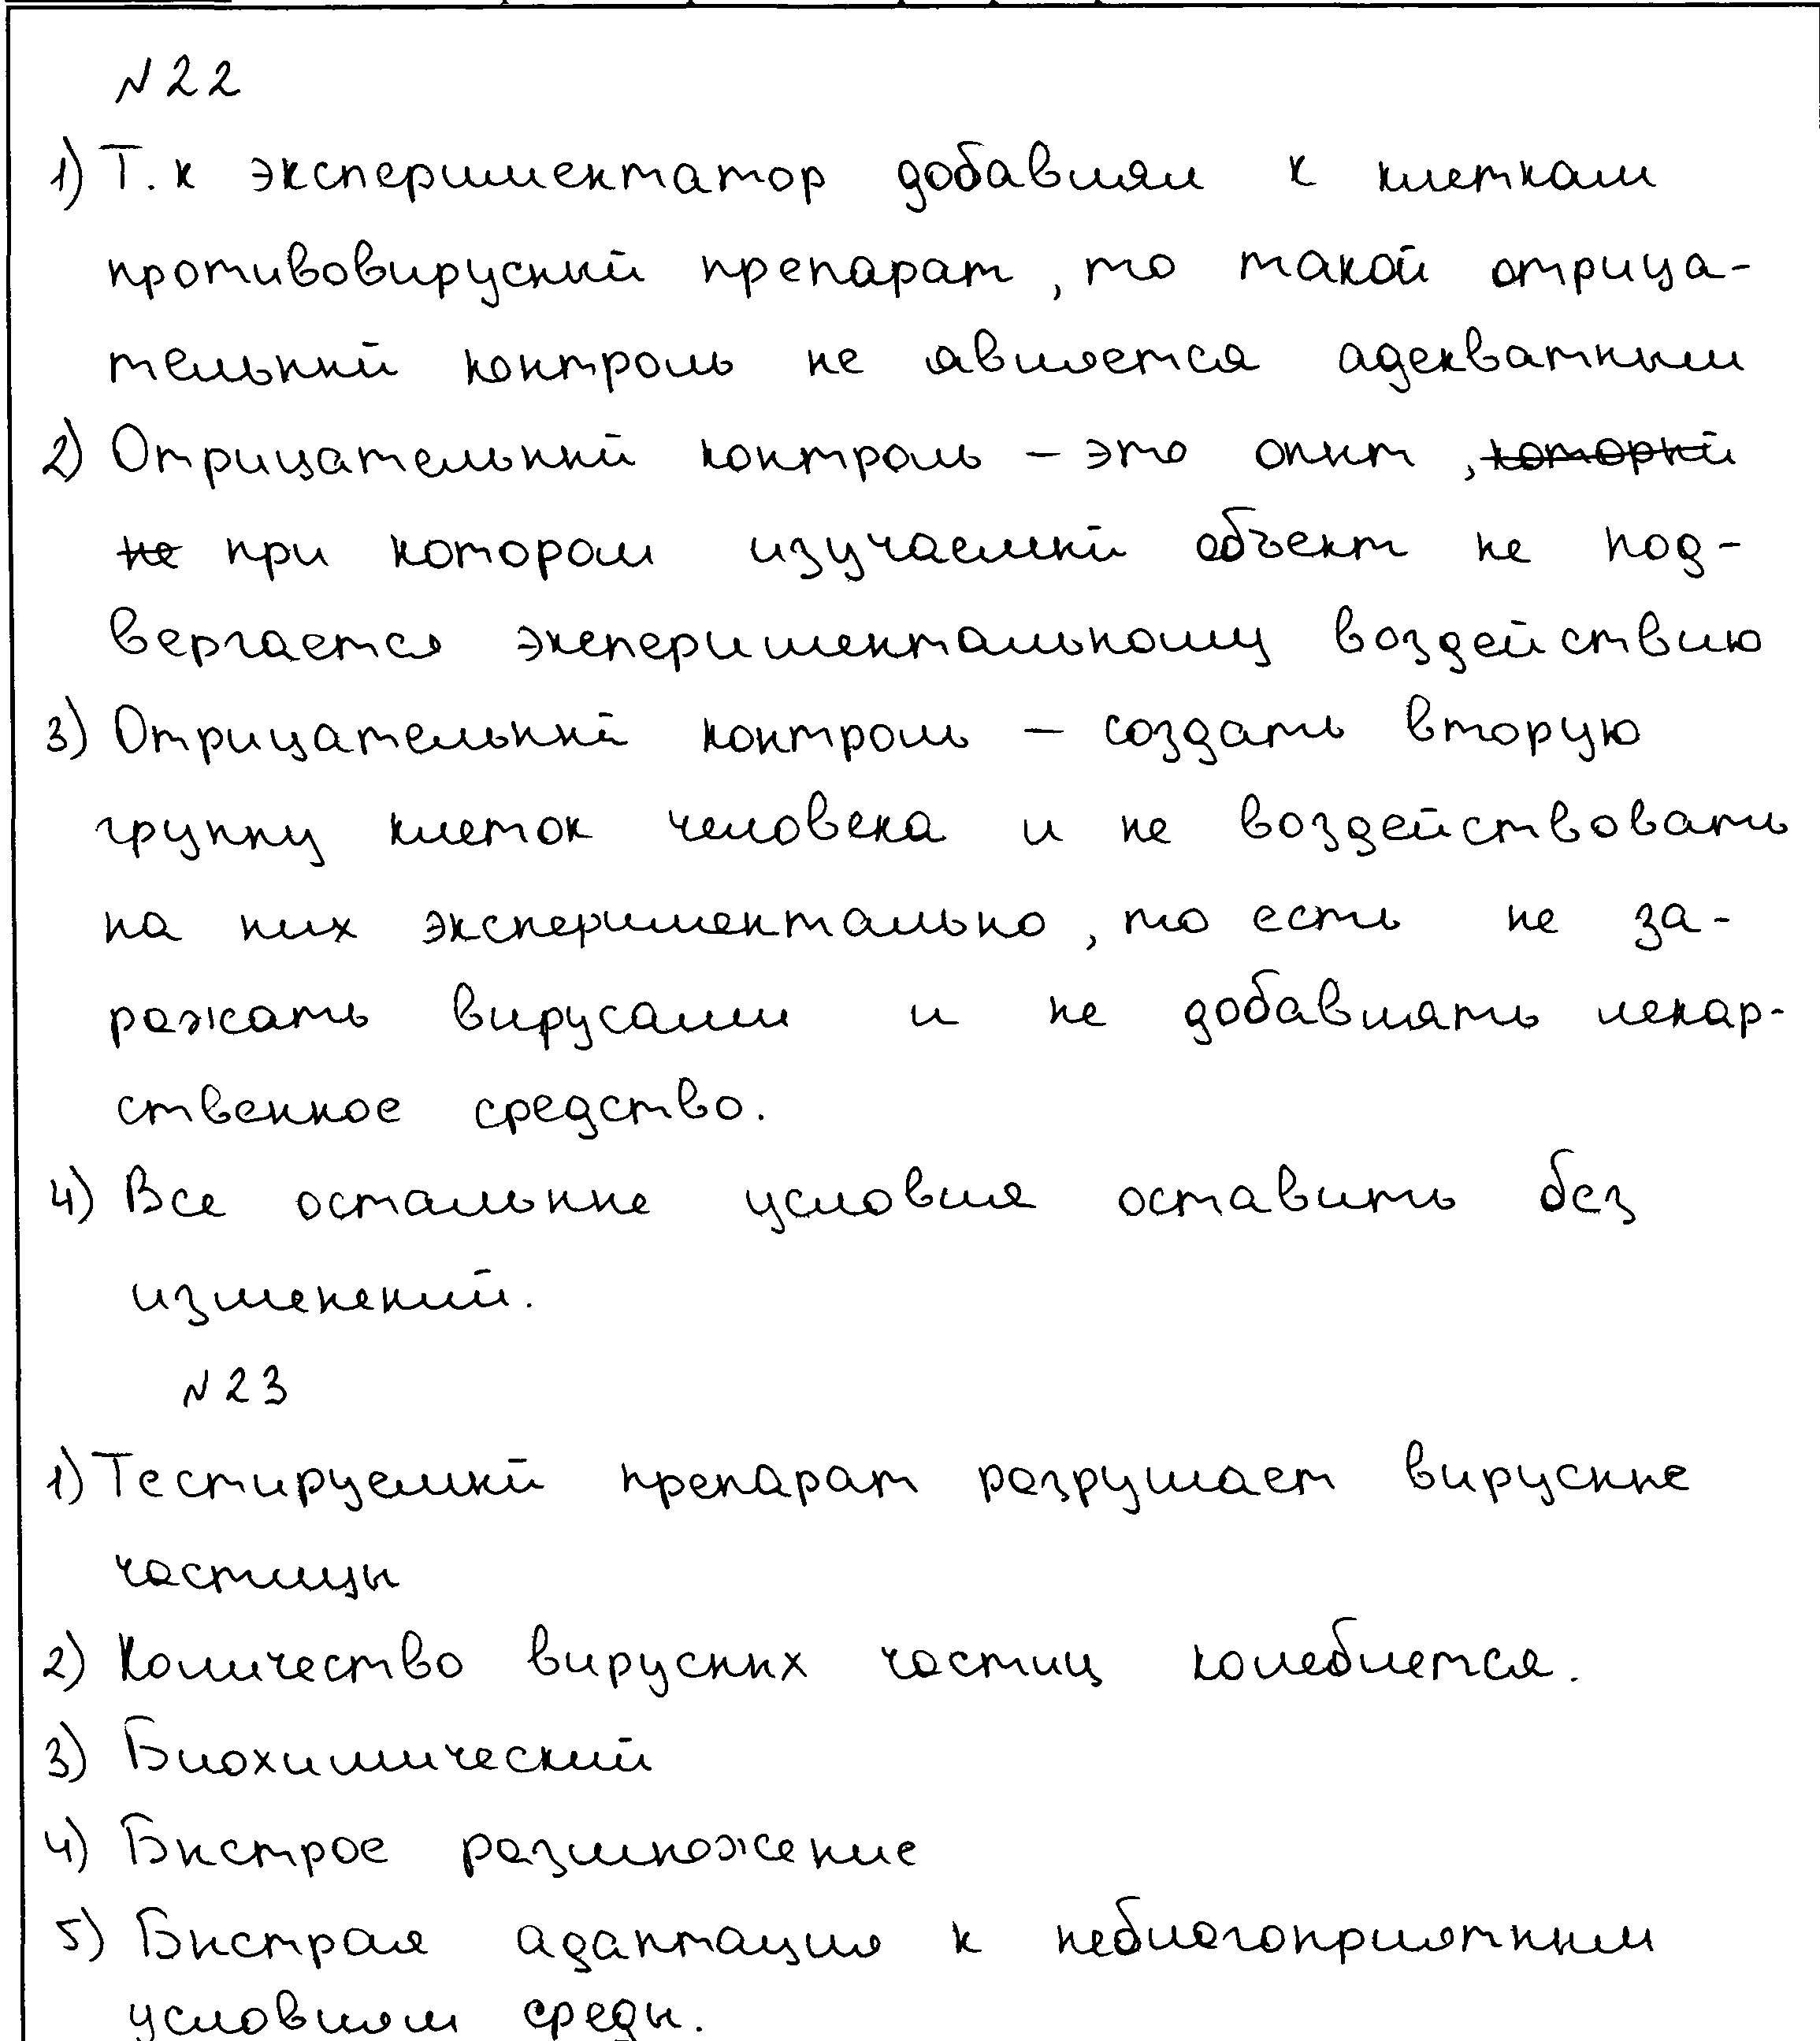 №22
1) Т.к экспериментатор добавлял к клеткам
противовирусный препарат, то такой отрица-
тельный контроль не является адекватным
2) Отрицательный контроль – это опыт, который
не при котором изучаемый объект не под-
вергается экспериментальному воздействию
3) Отрицательный контроль – создать вторую
группу клеток человека и не воздействовать
на них экспериментально, то есть не за-
ражать вирусами и не добавлять лекар-
ственное средство.
4) Все остальные условия оставить без
изменений.
№23
1) Тестируемый препарат разрушает вирусные
частицы
2) Количество вирусных частиц колеблется.
3) Биохимический
4) Быстрое размножение
5) Быстрая адаптация к неблагоприятным
условиям среды.